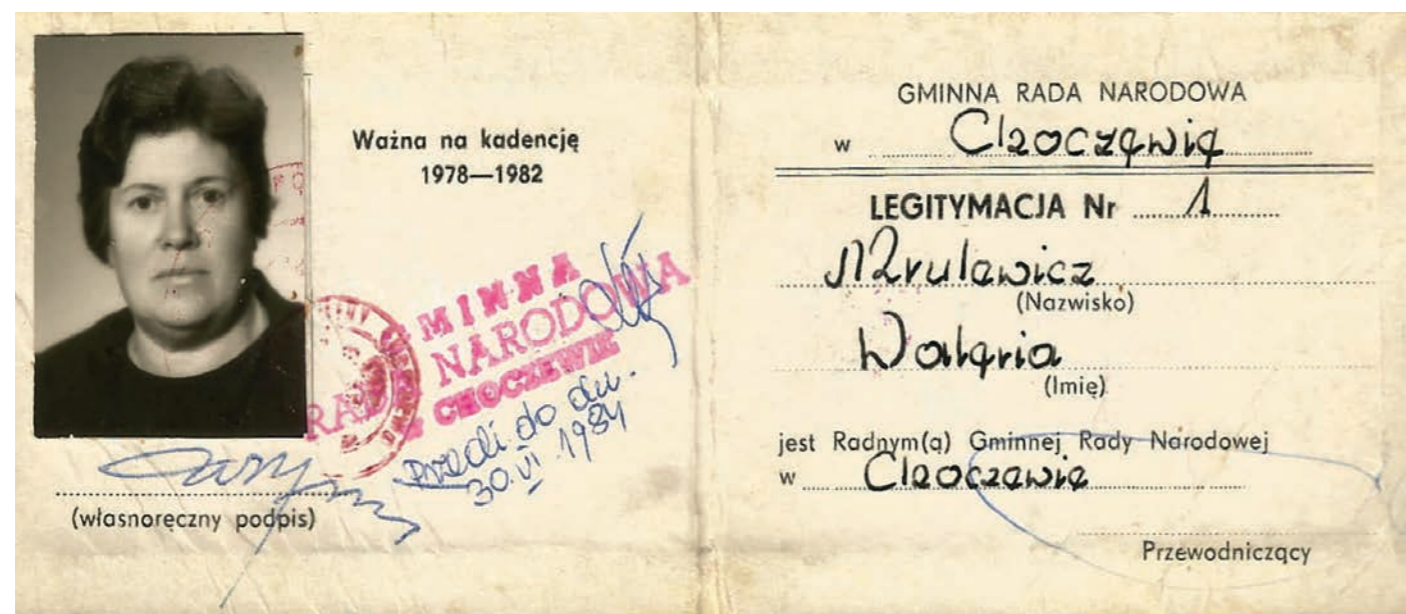 Ważna na kadencję
1978—1982
MINNA
RADA NARODOWA
W CHOCZEWIE
do dn.
30.VI.1984
(własnoręczny podpis)
GMINNA RADA NARODOWA
w Choczewie
LEGITYMACJA Nr 1
(Nazwisko)
Waleria
(Imię)
jest Radnym(ą) Gminnej Rady Narodowej
w Choczewie
Przewodniczący